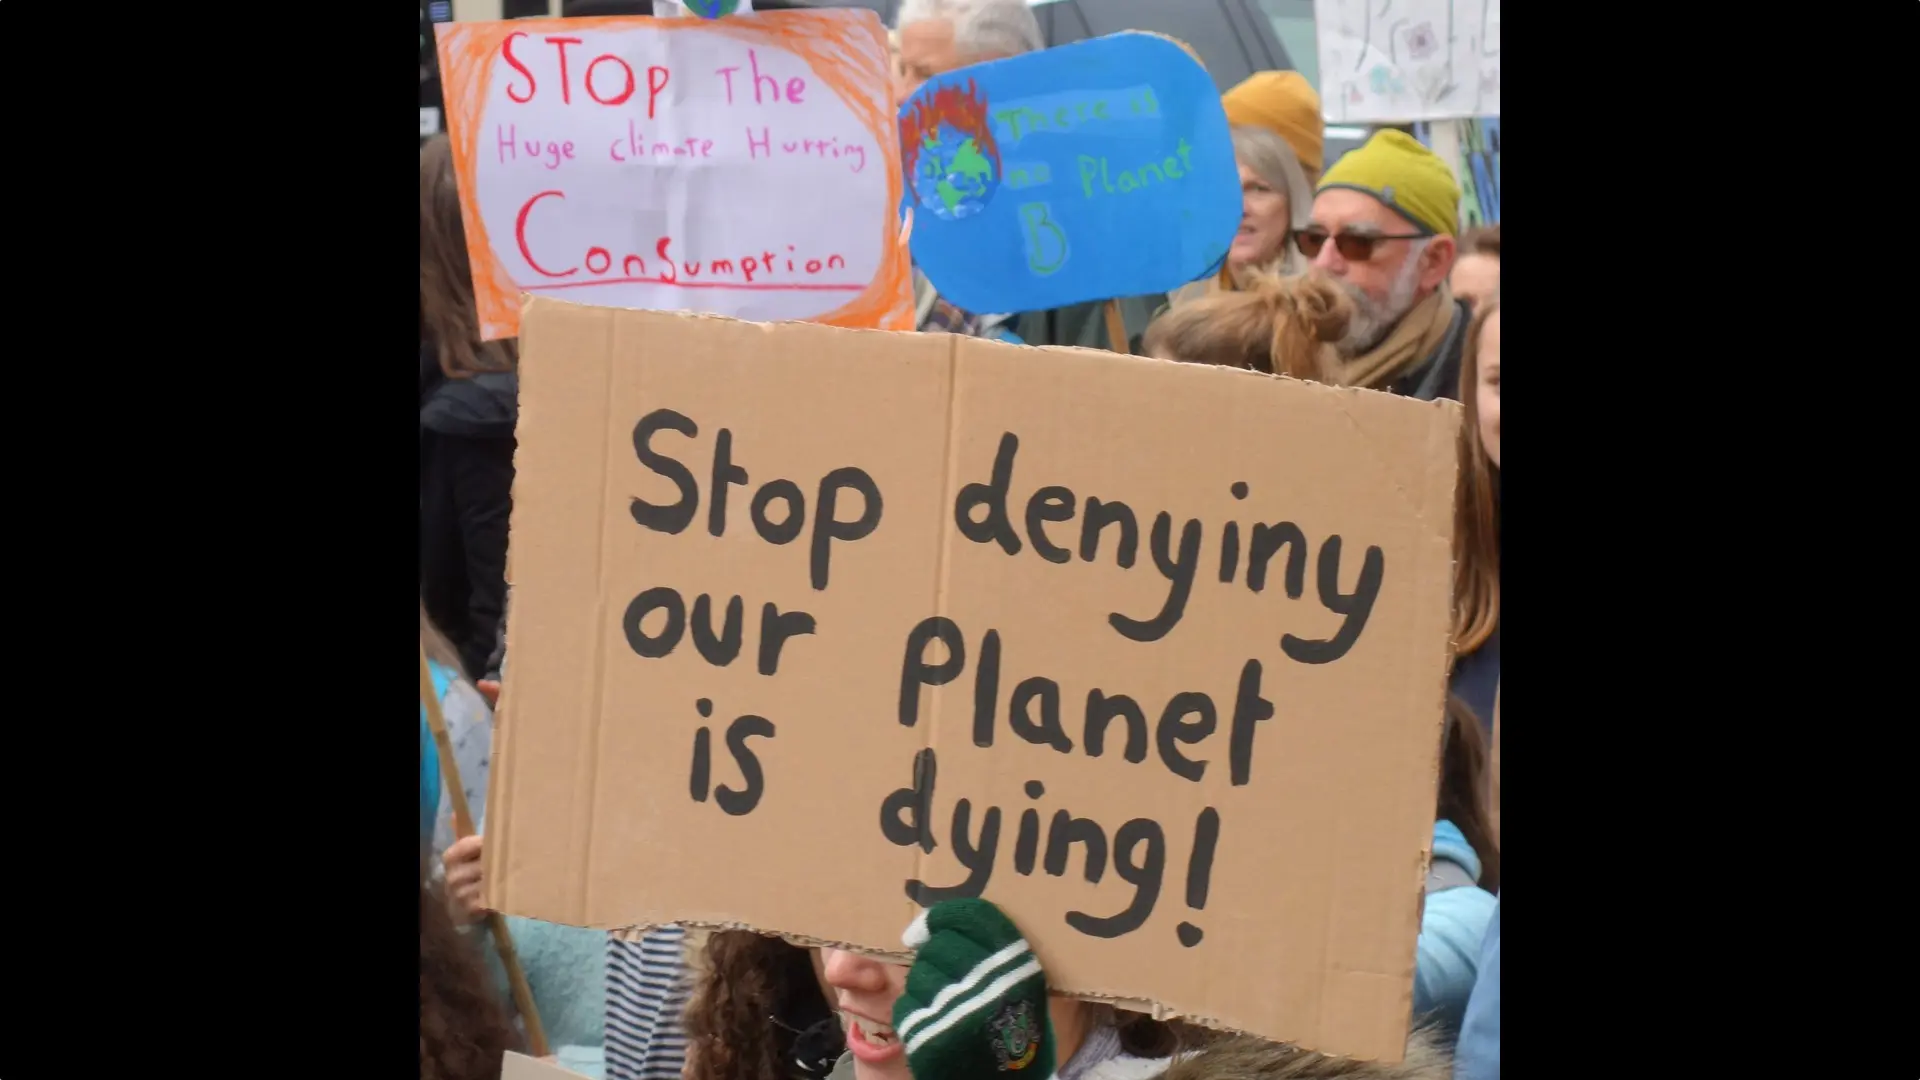 STOP The
Huge climate Hurting
Consumption
There is
no Planet
B
Stop denyiny
our Planet
is dying!